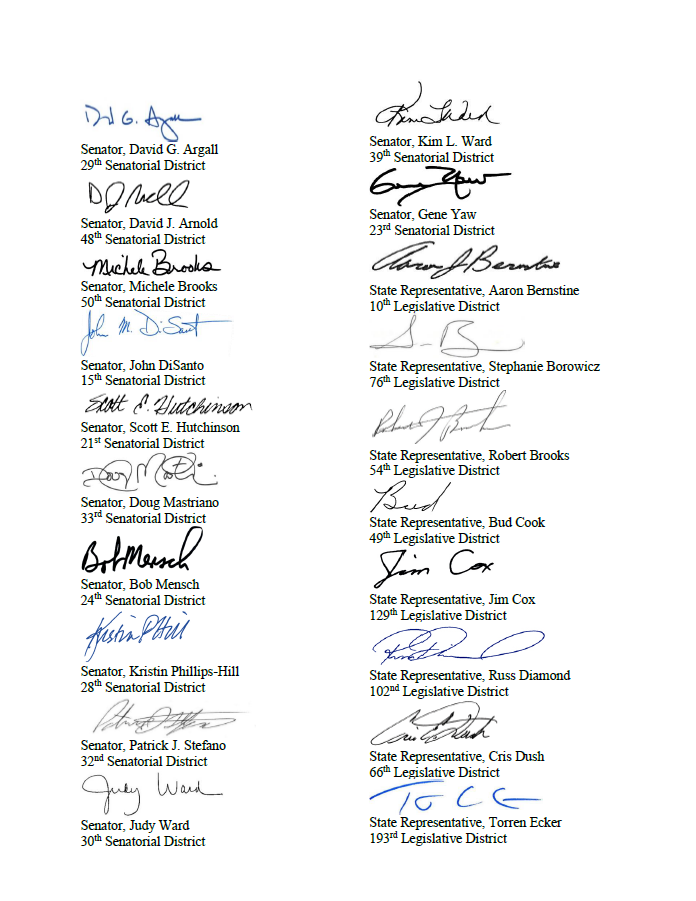 David G. Argall
Senator, David G. Argall
29th Senatorial District
D J Arnold
Senator, David J. Arnold
48th Senatorial District
Michele Brooks
Senator, Michele Brooks
50th Senatorial District
John M. DiSanto
Senator, John DiSanto
15th Senatorial District
Scott E. Hutchinson
Senator, Scott E. Hutchinson
21st Senatorial District
Doug Mastriano
Senator, Doug Mastriano
33rd Senatorial District
Bob Mensch
Senator, Bob Mensch
24th Senatorial District
Kristin P Hill
Senator, Kristin Phillips-Hill
28th Senatorial District
Senator, Patrick J. Stefano
32nd Senatorial District
Judy Ward
Senator, Judy Ward
30th Senatorial District
Kim L Ward
Senator, Kim L. Ward
39th Senatorial District
Gene Yaw
Senator, Gene Yaw
23rd Senatorial District
Aaron J Bernstine
State Representative, Aaron Bernstine
10th Legislative District
State Representative, Stephanie Borowicz
76th Legislative District
State Representative, Robert Brooks
54th Legislative District
Bud
State Representative, Bud Cook
49th Legislative District
Jim Cox
State Representative, Jim Cox
129th Legislative District
State Representative, Russ Diamond
102nd Legislative District
Cris Dush
State Representative, Cris Dush
66th Legislative District
State Representative, Torren Ecker
193rd Legislative District